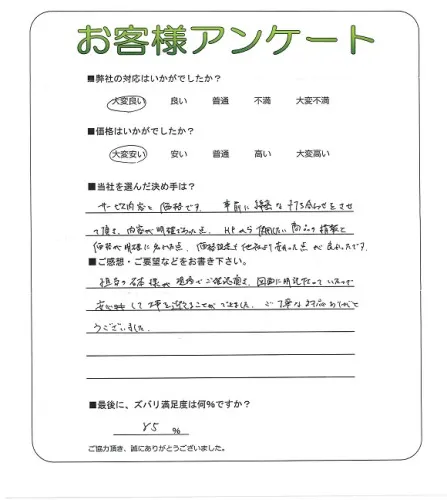 お客様アンケート
■弊社の対応はいかがでしたか?
大変良い 良い 普通 不満 大変不満
■価格はいかがでしたか?
大変安い 安い 普通 高い 大変高い
■当社を選んだ決め手は?
サービス内容と価格です。 事前に綿密な打ち合わせをさせ
て頂き、内容が明確であった点、HPから
価格が明確に 点、価格設定も他社より安かった点が
■ご感想・ご要望などをお書き下さい。
担当の 様が現場でご確認頂き、図面に
安心して をすることができました。ご丁寧な対応ありがと
うございました。
■最後に、ズバリ満足度は何%ですか?
85 %
ご協力頂き、誠にありがとうございました。